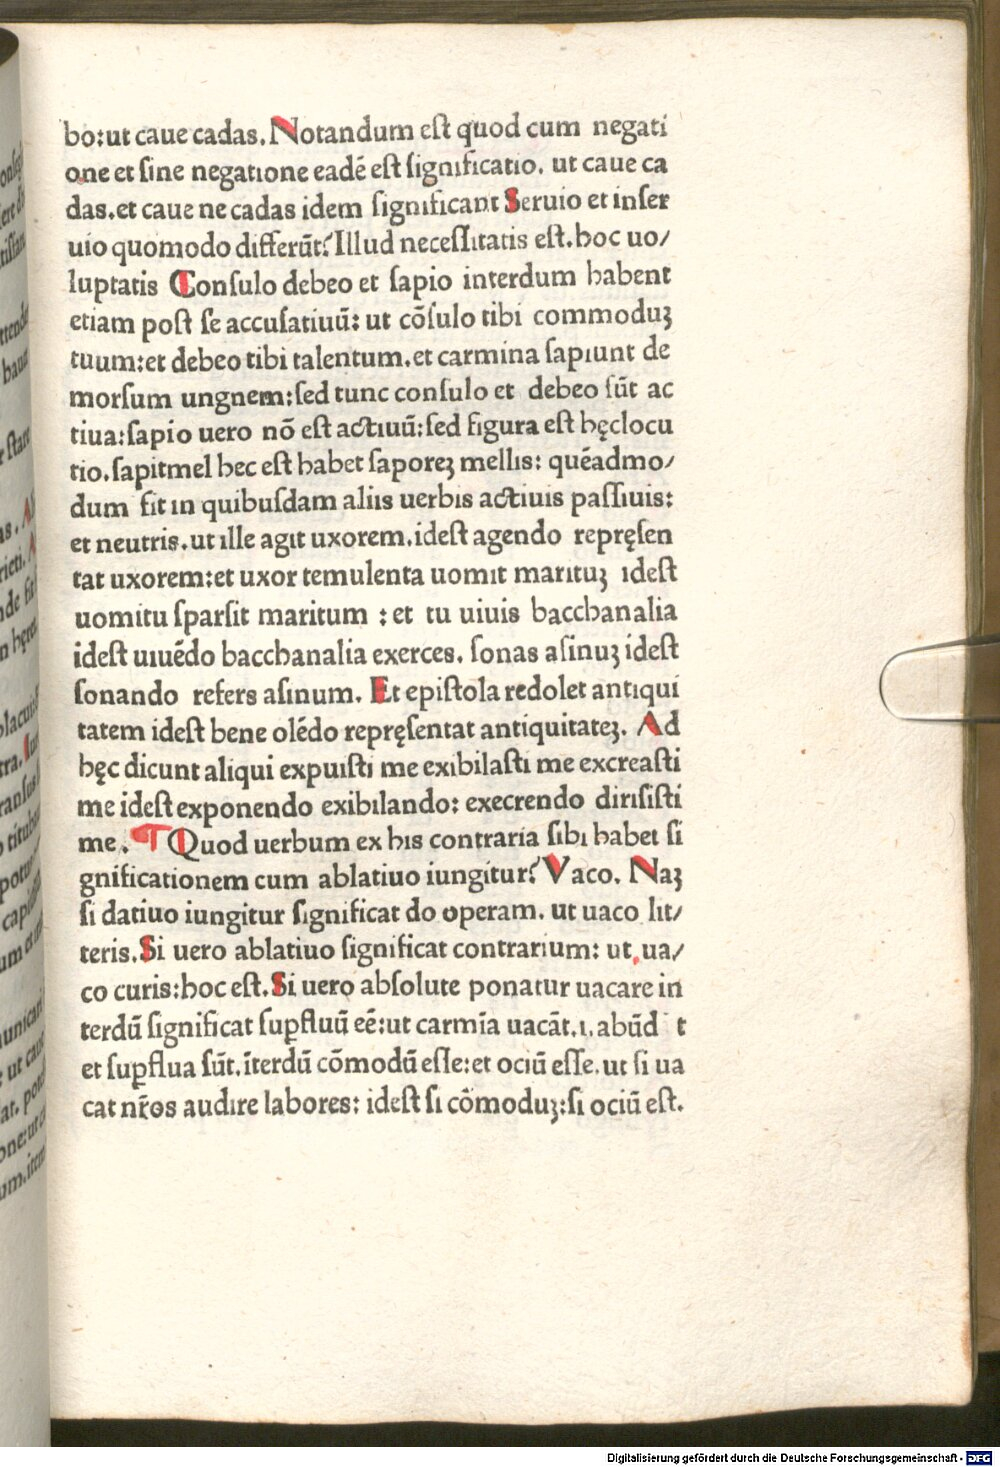 bo:ut caue cadas. Notandum eſt quod cum negati
one et ſine negatione eadē eſt ſignificatio. ut caue ca
das.et caue ne cadas idem ſignificant Seruio et inſer
uio quomodo differūt? Illud neceſſitatis eſt.hoc uo/
luptatis Conſulo debeo et ſapio interdum habent
etiam poſt ſe accuſatiuū: ut cōſulo tibi commoduꝫ
tuum:et debeo tibi talentum.et carmina ſapiunt de
morſum ungnem:ſed tunc conſulo et debeo ſūt ac
tiua:ſapio uero nō eſt actiuū:ſed figura eſt hęclocu
tio.ſapitmel hec eſt habet ſaporeꝫ mellis: quēadmo/
dum fit in quibuſdam aliis uerbis actiuis paſſiuis:
et neutris.ut ille agit uxorem.ideſt agendo repręſen
tat uxorem:et uxor temulenta uomit marituꝫ ideſt
uomitu ſparſit maritum : et tu uiuis bacchanalia
ideſt uiuēdo bacchanalia exerces. ſonas aſinuꝫ ideſt
ſonando refers aſinum. Et epiſtola redolet antiqui
tatem ideſt bene olēdo repręſentat antiquitateꝫ. Ad
hęc dicunt aliqui expuiſti me exibilaſti me excreaſti
me ideſt exponendo exibilando: execrendo diriſiſti
me. ¶ Quod uerbum ex his contraria ſibi habet ſi
gnificationem cum ablatiuo iungitur? Vaco. Naꝫ
ſi datiuo iungitur ſignificat do operam. ut uaco lit/
teris. Si uero ablatiuo ſignificat contrarium: ut ua/
co curis:hoc eſt. Si uero abſolute ponatur uacare in
terdū ſignificat ſuꝑfluū eē:ut carmīa uacāt.i.abūd t
et ſuꝑflua ſūt.īterdū cōmodū eſſe:et ociū eſſe.ut ſi ua
cat nr̄os audire labores: ideſt ſi cōmoduꝫ:ſi ociū eſt.
Digitalisierung gefördert durch die Deutsche Forschungsgemeinschaft - DFG